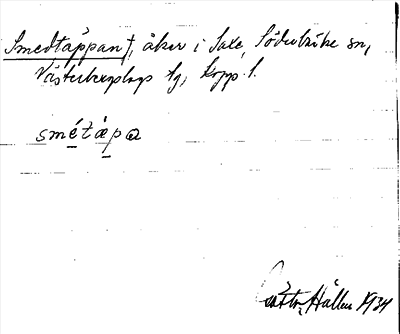 Smedtäppan †, åker i Saxe, Söderbärke sn,
Västerbergslags tg, Kopp. l.
smétäpa
Hällen 1934